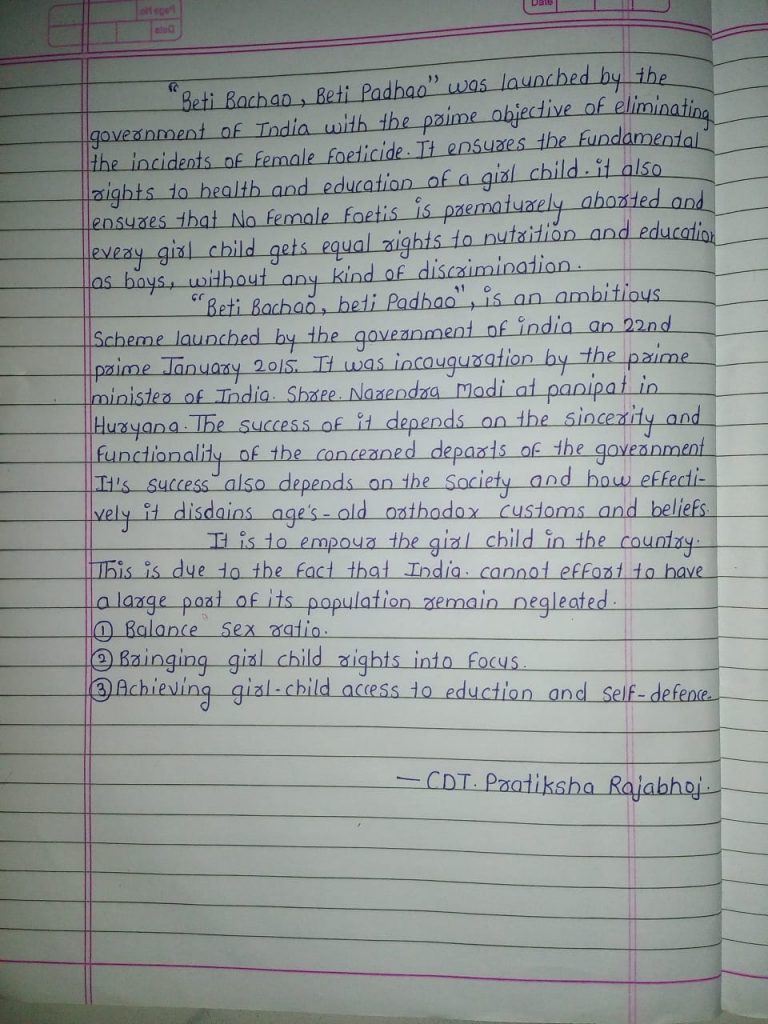 Date
Page No
Date
"Beti Bachao, Beti Padhao" was launched by the
government of India with the prime objective of eliminating
the incidents of Female Foeticide. It ensures the Fundamental
rights to health and education of a girl child. it also
ensures that No Female Foetis is prematurely aborted and
every girl child gets equal rights to nutrition and education
as boys, without any kind of discrimination.
"Beti Bachao, beti Padhao", is an ambitious
Scheme launched by the government of india an 22nd
prime January 2015. It was incauguration by the prime
minister of India. Shree. Narendra Modi at panipat in
Huryana. The success of it depends on the sincerity and
Functionality of the concerned departs of the government
It's success also depends on the Society and how effecti-
vely it disdains age's-old orthodox customs and beliefs.
It is to empour the girl child in the country.
This is due to the fact that India. cannot effort to have
a large part of its population remain negleated.
① Balance sex ratio.
② Bringing girl child rights into Focus.
③ Achieving girl-child access to eduction and self-defence.
— CDT. Pratiksha Rajabhoj.